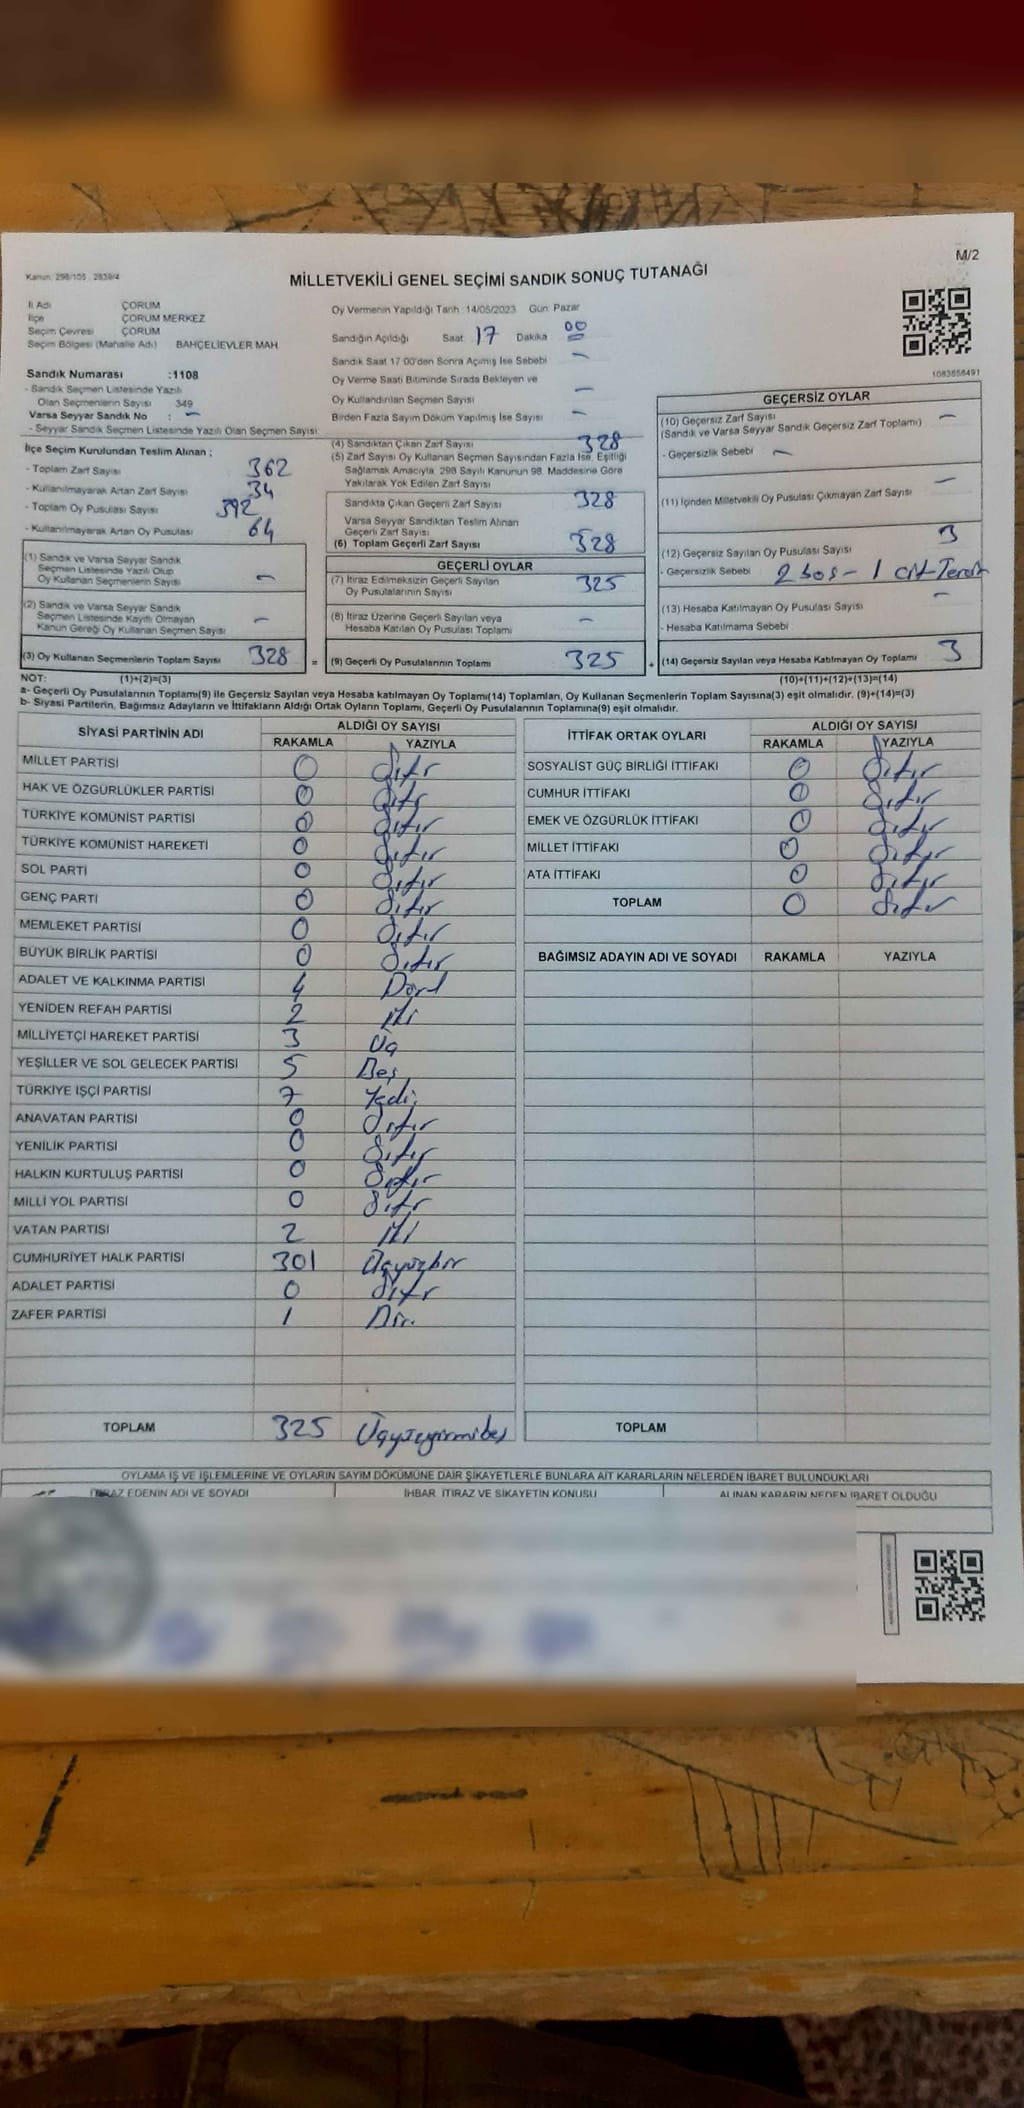 Kanun: 298/105 , 2839/4
MİLLETVEKİLİ GENEL SEÇİMİ SANDIK SONUÇ TUTANAĞI
M/2
İl Adı ÇORUM
İlçe ÇORUM MERKEZ
Seçim Çevresi ÇORUM
Seçim Bölgesi (Mahalle Adı) BAHÇELİEVLER MAH
Sandık Numarası :1108
- Sandık Seçmen Listesinde Yazılı
Olan Seçmenlerin Sayısı 349
Varsa Seyyar Sandık No : -
- Seyyar Sandık Seçmen Listesinde Yazılı Olan Seçmen Sayısı
Oy Vermenin Yapıldığı Tarih :14/05/2023 Gün: Pazar
Sandığın Açıldığı Saat 17 Dakika 00
Sandık Saat 17:00'den Sonra Açımış İse Sebebi -
Oy Verme Saati Bitiminde Sırada Bekleyen ve
Oy Kullandırılan Seçmen Sayısı -
Birden Fazla Sayım Döküm Yapılmış İse Sayısı -
1083658491
İlçe Seçim Kurulundan Teslim Alınan ;
- Toplam Zarf Sayısı 362
- Kullanılmayarak Artan Zarf Sayısı 34
- Toplam Oy Pusulası Sayısı 392
- Kullanılmayarak Artan Oy Pusulası 64
(1) Sandık ve Varsa Seyyar Sandık
Seçmen Listesinde Yazılı Olup
Oy Kullanan Seçmenlerin Sayısı -
(2) Sandık ve Varsa Seyyar Sandık
Seçmen Listesinde Kayıtlı Olmayan
Kanun Gereği Oy Kullanan Seçmen Sayısı -
(3) Oy Kullanan Seçmenlerin Toplam Sayısı 328 =
(4) Sandıktan Çıkan Zarf Sayısı 328
(5) Zarf Sayısı Oy Kullanan Seçmen Sayısından Fazla İse, Eşitliği
Sağlamak Amacıyla, 298 Sayılı Kanunun 98. Maddesine Göre
Yakılarak Yok Edilen Zarf Sayısı
Sandıkta Çıkan Geçerli Zarf Sayısı 328
Varsa Seyyar Sandıktan Teslim Alınan
Geçerli Zarf Sayısı
(6) Toplam Geçerli Zarf Sayısı 328
GEÇERLİ OYLAR
(7) İtiraz Edilmeksizin Geçerli Sayılan
Oy Pusulalarının Sayısı 325
(8) İtiraz Üzerine Geçerli Sayılan veya
Hesaba Katılan Oy Pusulası Toplamı -
(9) Geçerli Oy Pusulalarının Toplamı 325 +
GEÇERSİZ OYLAR
(10) Geçersiz Zarf Sayısı -
(Sandık ve Varsa Seyyar Sandık Geçersiz Zarf Toplamı)
- Geçersizlik Sebebi -
(11) İçinden Milletvekili Oy Pusulası Çıkmayan Zarf Sayısı -
(12) Geçersiz Sayılan Oy Pusulası Sayısı 3
- Geçersizlik Sebebi 2 boş - 1 çift Tercih
(13) Hesaba Katılmayan Oy Pusulası Sayısı -
- Hesaba Katılmama Sebebi
(14) Geçersiz Sayılan veya Hesaba Katılmayan Oy Toplamı 3
NOT: (1)+(2)=(3) (10)+(11)+(12)+(13)=(14)
a- Geçerli Oy Pusulalarının Toplamı(9) ile Geçersiz Sayılan veya Hesaba katılmayan Oy Toplamı(14) Toplamları, Oy Kullanan Seçmenlerin Toplam Sayısına(3) eşit olmalıdır. (9)+(14)=(3)
b- Siyasi Partilerin, Bağımsız Adayların ve İttifakların Aldığı Ortak Oyların Toplamı, Geçerli Oy Pusulalarının Toplamına(9) eşit olmalıdır.
SİYASİ PARTİNİN ADI ALDIĞI OY SAYISI
RAKAMLA YAZIYLA
MİLLET PARTİSİ 0 Sıfır
HAK VE ÖZGÜRLÜKLER PARTİSİ 0 Sıfır
TÜRKİYE KOMÜNİST PARTİSİ 0 Sıfır
TÜRKİYE KOMÜNİST HAREKETİ 0 Sıfır
SOL PARTİ 0 Sıfır
GENÇ PARTİ 0 Sıfır
MEMLEKET PARTİSİ 0 Sıfır
BÜYÜK BİRLİK PARTİSİ 0 Sıfır
ADALET VE KALKINMA PARTİSİ 4 Dört
YENİDEN REFAH PARTİSİ 2 İki
MİLLİYETÇİ HAREKET PARTİSİ 3 Üç
YEŞİLLER VE SOL GELECEK PARTİSİ 5 Beş
TÜRKİYE İŞÇİ PARTİSİ 7 Yedi
ANAVATAN PARTİSİ 0 Sıfır
YENİLİK PARTİSİ 0 Sıfır
HALKIN KURTULUŞ PARTİSİ 0 Sıfır
MİLLİ YOL PARTİSİ 0 Sıfır
VATAN PARTİSİ 2 İki
CUMHURİYET HALK PARTİSİ 301 Üçyüzbir
ADALET PARTİSİ 0 Sıfır
ZAFER PARTİSİ 1 Bir
TOPLAM 325 Üçyüzyirmibeş
İTTİFAK ORTAK OYLARI ALDIĞI OY SAYISI
RAKAMLA YAZIYLA
SOSYALİST GÜÇ BİRLİĞİ İTTİFAKI 0 Sıfır
CUMHUR İTTİFAKI 0 Sıfır
EMEK VE ÖZGÜRLÜK İTTİFAKI 0 Sıfır
MİLLET İTTİFAKI 0 Sıfır
ATA İTTİFAKI 0 Sıfır
TOPLAM 0 Sıfır
BAĞIMSIZ ADAYIN ADI VE SOYADI RAKAMLA YAZIYLA
TOPLAM
OYLAMA İŞ VE İŞLEMLERİNE VE OYLARIN SAYIM DÖKÜMÜNE DAİR ŞİKAYETLERLE BUNLARA AİT KARARLARIN NELERDEN İBARET BULUNDUKLARI
İTİRAZ EDENİN ADI VE SOYADI İHBAR, İTİRAZ VE ŞİKAYETİN KONUSU ALINAN KARARIN NEDEN İBARET OLDUĞU